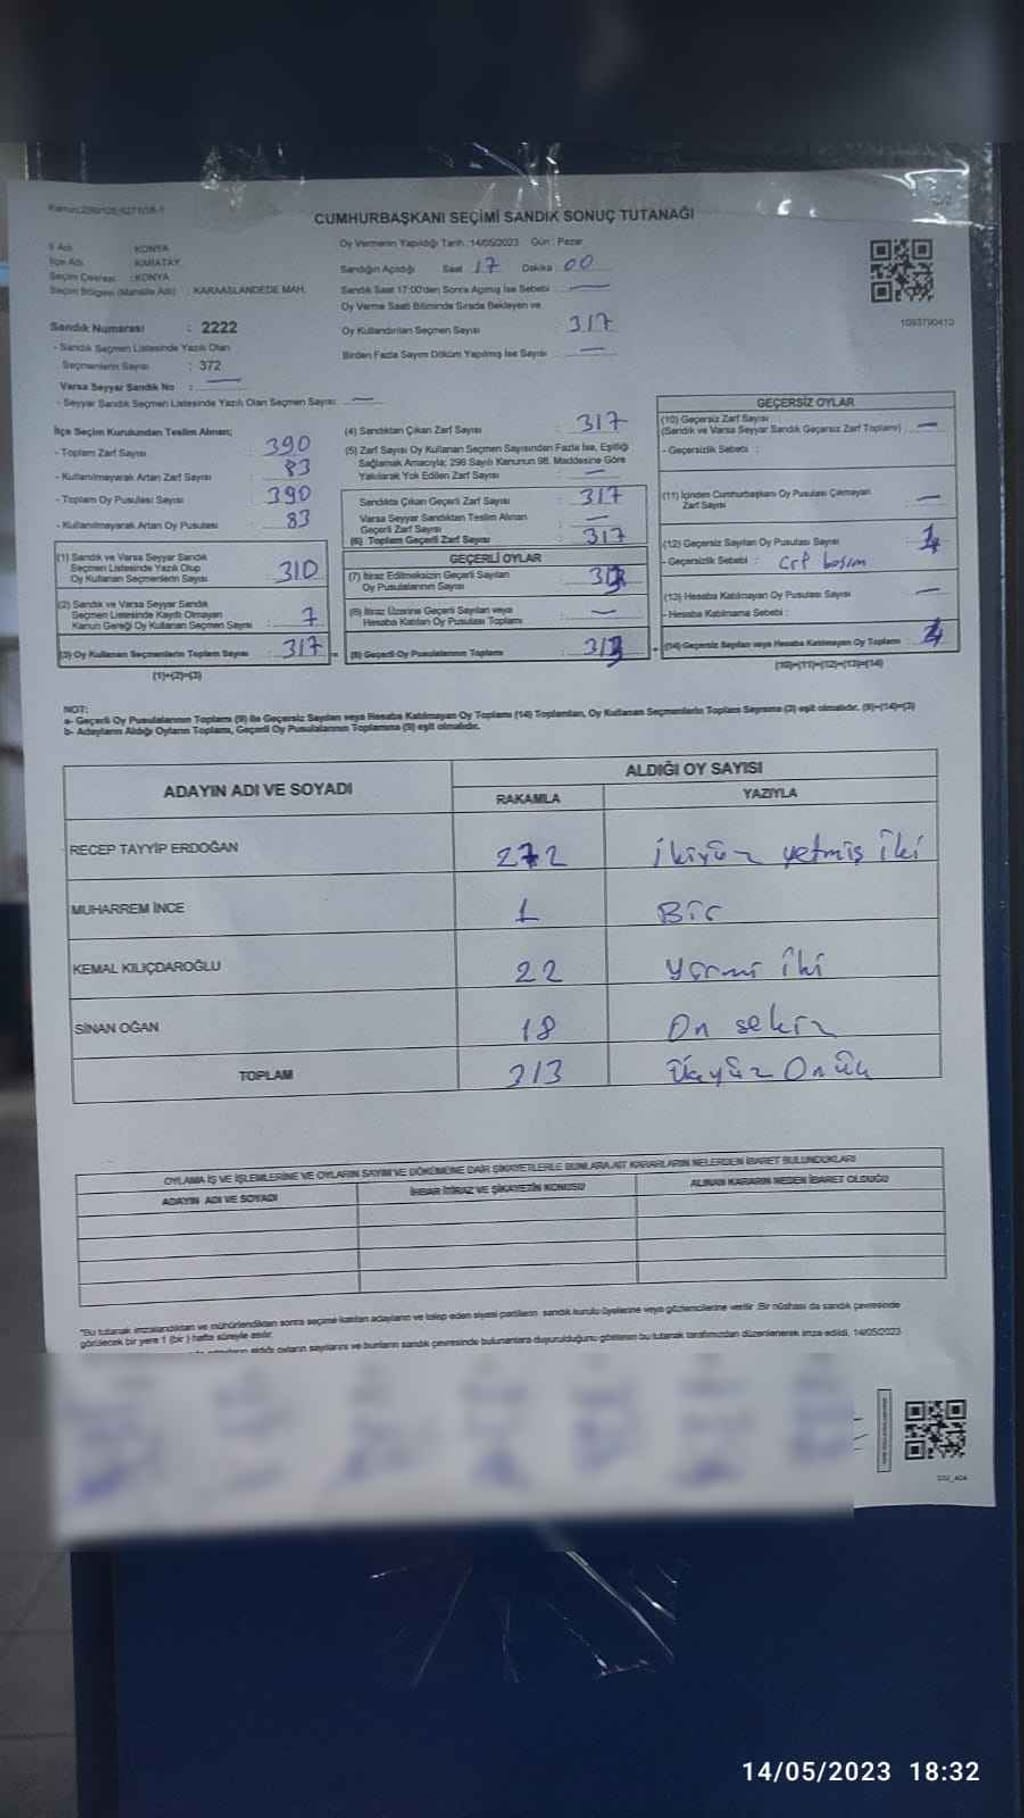 CUMHURBAŞKANI SEÇİMİ SANDIK SONUÇ TUTANAĞI
İl Adı : KONYA
İlçe Adı : KARATAY
Seçim Çevresi : KONYA
Seçim Bölgesi (Mahalle Adı) : KARAASLANDEDE MAH.
Sandık Numarası : 2222
- Sandık Seçmen Listesinde Yazılı Olan
Seçmenlerin Sayısı : 372
Varsa Seyyar Sandık No : —
- Seyyar Sandık Seçmen Listesinde Yazılı Olan Seçmen Sayısı : —
Oy Vermenin Yapıldığı Tarih : 14/05/2023 Gün : Pazar
Sandığın Açıldığı Saat 17 Dakika 00
Sandık Saat 17:00'den Sonra Açılmış İse Sebebi : —
Oy Verme Saati Bitiminde Sırada Bekleyen ve
Oy Kullandırılan Seçmen Sayısı : 317
Birden Fazla Sayım Döküm Yapılmış İse Sayısı : —
1093790410
İlçe Seçim Kurulundan Teslim Alınan;
- Toplam Zarf Sayısı : 390
- Kullanılmayarak Artan Zarf Sayısı : 83
- Toplam Oy Pusulası Sayısı : 390
- Kullanılmayarak Artan Oy Pusulası : 83
(1) Sandık ve Varsa Seyyar Sandık
Seçmen Listesinde Yazılı Olup
Oy Kullanan Seçmenlerin Sayısı : 310
(2) Sandık ve Varsa Seyyar Sandık
Seçmen Listesinde Kayıtlı Olmayan
Kanun Gereği Oy Kullanan Seçmen Sayısı : 7
(3) Oy Kullanan Seçmenlerin Toplam Sayısı : 317
(1)+(2)=(3)
(4) Sandıktan Çıkan Zarf Sayısı : 317
(5) Zarf Sayısı Oy Kullanan Seçmen Sayısından Fazla İse, Eşitliği
Sağlamak Amacıyla; 298 Sayılı Kanunun 98. Maddesine Göre
Yakılarak Yok Edilen Zarf Sayısı : —
Sandıkta Çıkan Geçerli Zarf Sayısı : 317
Varsa Seyyar Sandıktan Teslim Alınan
Geçerli Zarf Sayısı : —
(6) Toplam Geçerli Zarf Sayısı : 317
GEÇERLİ OYLAR
(7) İtiraz Edilmeksizin Geçerli Sayılan
Oy Pusulalarının Sayısı : 313
(8) İtiraz Üzerine Geçerli Sayılan veya
Hesaba Katılan Oy Pusulası Toplamı : —
(9) Geçerli Oy Pusulalarının Toplamı : 313
GEÇERSİZ OYLAR
(10) Geçersiz Zarf Sayısı
(Sandık ve Varsa Seyyar Sandık Geçersiz Zarf Toplamı) : —
- Geçersizlik Sebebi :
(11) İçinden Cumhurbaşkanı Oy Pusulası Çıkmayan
Zarf Sayısı : —
(12) Geçersiz Sayılan Oy Pusulası Sayısı : 4
- Geçersizlik Sebebi :
(13) Hesaba Katılmayan Oy Pusulası Sayısı : —
- Hesaba Katılmama Sebebi :
(14) Geçersiz Sayılan veya Hesaba Katılmayan Oy Toplamı : 4
(10)+(11)+(12)+(13)=(14)
NOT:
a- Geçerli Oy Pusulalarının Toplamı (9) ile Geçersiz Sayılan veya Hesaba Katılmayan Oy Toplamı (14) Toplamları, Oy Kullanan Seçmenlerin Toplam Sayısına (3) eşit olmalıdır. (9)+(14)=(3)
b- Adayların Aldığı Oyların Toplamı, Geçerli Oy Pusulalarının Toplamına (9) eşit olmalıdır.
ADAYIN ADI VE SOYADI ALDIĞI OY SAYISI
RAKAMLA YAZIYLA
RECEP TAYYİP ERDOĞAN 272 ikiyüz yetmiş iki
MUHARREM İNCE 1 Bir
KEMAL KILIÇDAROĞLU 22 Yirmi iki
SİNAN OĞAN 18 On sekiz
TOPLAM 313 Üçyüz Onüç
OYLAMA İŞ VE İŞLEMLERİNE VE OYLARIN SAYIM VE DÖKÜMÜNE DAİR ŞİKAYETLERLE BUNLARA AİT KARARLARIN NELERDEN İBARET BULUNDUKLARI
ADAYIN ADI VE SOYADI İHBAR İTİRAZ VE ŞİKAYETİN KONUSU ALINAN KARARIN NEDEN İBARET OLDUĞU
"Bu tutanak imzalandıktan ve mühürlendikten sonra seçime katılan adayların ve talep eden siyasi partilerin sandık kurulu üyelerine veya gözlemcilerine verilir. Bir nüshası da sandık çevresinde
görülecek bir yere 1 (bir) hafta süreyle asılır.
aldığı oyların sayılarını ve bunların sandık çevresinde bulunanlara duyurulduğunu gösteren bu tutanak tarafımızdan düzenlenerek imza edildi. 14/05/2023
14/05/2023 18:32